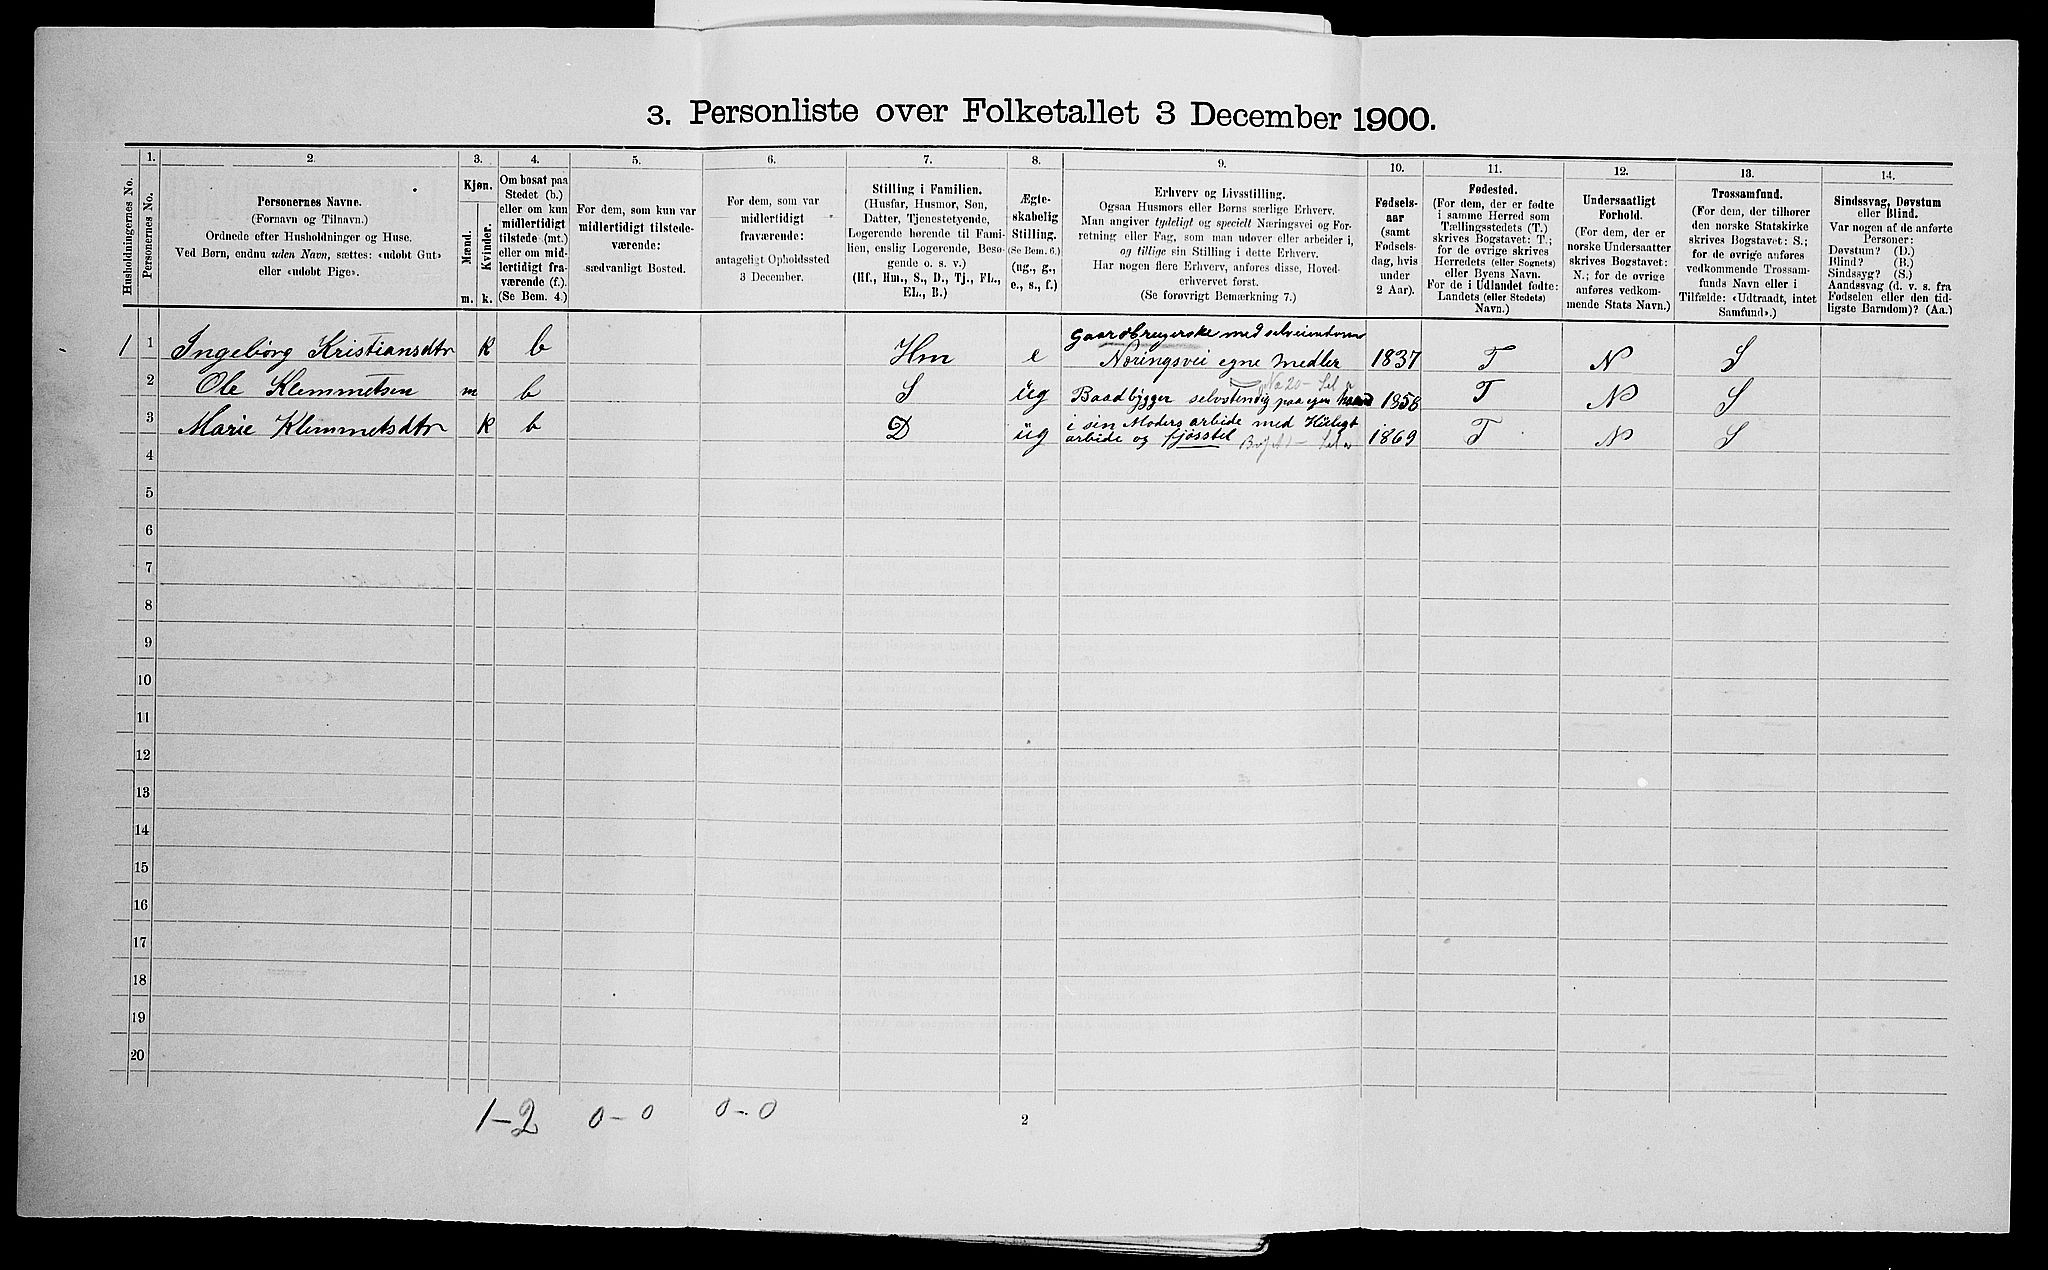 3. Personliste over Folketallet 3 December 1900.
Husholdningernes No.
1.
Personernes No.
2.
Personernes Navne.
(Fornavn og Tilnavn.)
Ordnede efter Husholdninger og Huse.
Ved Børn, endnu uden Navn, sættes: «udøbt Gut»
eller «udøbt Pige».
3.
Kjøn.
Mænd.
Kvinder.
m.
k.
4.
Om bosat paa
Stedet (b.)
eller om kun
midlertidigt
tilstede (mt.)
eller om mid-
lertidigt fra-
værende (f.).
(Se Bem. 4.)
5.
For dem, som kun var
midlertidigt tilstede-
værende:
sædvanligt Bosted.
6.
For dem, som var
midlertidigt
fraværende:
antageligt Opholdssted
3 December.
7.
Stilling i Familien.
(Husfar, Husmor, Søn,
Datter, Tjenestetyende,
Logerende hørende til Fami-
lien, enslig Logerende, Besø-
gende o. s. v.)
(Hf., Hm., S., D., Tj., FL.,
EL., B.)
8.
Ægte-
skabelig
Stilling.
(Se Bem. 6.)
(ug., g.,
e., s., f.)
9.
Erhverv og Livsstilling.
Ogsaa Husmors eller Børns særlige Erhverv.
Man angiver tydeligt og specielt Næringsvei og For-
retning eller Fag, som man udøver eller arbeider i,
og tillige sin Stilling i dette Erhverv.
Har nogen flere Erhverv, anføres disse, Hoved-
erhvervet først.
(Se forøvrigt Bemærkning 7.)
10.
Fødsels-
aar
(samt
Fødsels-
dag, hvis
under
2 Aar).
11.
Fødested.
(For dem, der er fødte
i samme Herred som
Tællingsstedets (T.)
skrives Bogstavet: T.;
for de øvrige skrives
Herredets (eller Sognets)
eller Byens Navn.
For de i Udlandet fødte:
Landets (eller Stedets)
Navn.)
12.
Undersaatligt
Forhold.
(For dem, der er
norske Undersaatter
skrives Bogstavet:
N.; for de øvrige
anføres vedkom-
mende Stats Navn.)
13.
Trossamfund.
(For dem, der tilhører
den norske Statskirke
skrives Bogstavet: S.;
for de øvrige anføres
vedkommende Trossam-
funds Navn eller i
Tilfælde: «Udtraadt, intet
Samfund».)
14.
Sindssvag, Døvstum
eller Blind.
Var nogen af de anførte
Personer:
Døvstum? (D.)
Blind? (B.)
Sindssyg? (S.)
Aandssvag (d. v. s. fra
Fødselen eller den tid-
ligste Barndom)? (Aa.)
Gaardbrugerske med selveiendoms
1 1 Ingebörg Kristiansdtr k b Hm e Næringsvei egne medler 1837 T N S
2 Ole Klemmetsen m b S üg Baadbygger selvstendig paa egen haand 1858 T N S
3 Marie Klemmetsdtr k b D üg i sin Moders arbeide med Hüsligt
arbeide og fjösstel 1869 T N S
4
5
6
7
8
9
10
11
12
13
14
15
16
17
18
19
20
1-2 0-0 0-0
2